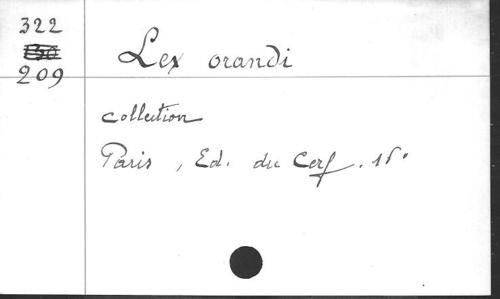 322
209
Lex orandi
collection
Paris, Ed. du Cerf.